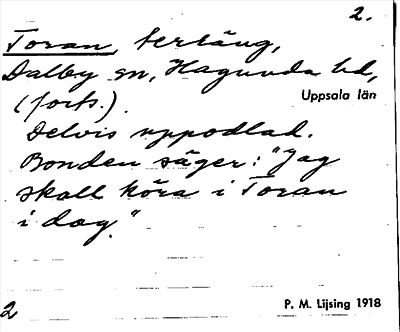 2.
Toran, terläng,
Dalby sn, Hagunda hd,
Uppsala län
(forts.).
Delvis uppodlad.
Bonden säger: "Jag
skall köra i Toran
i dag."
2
P. M. Lijsing 1918